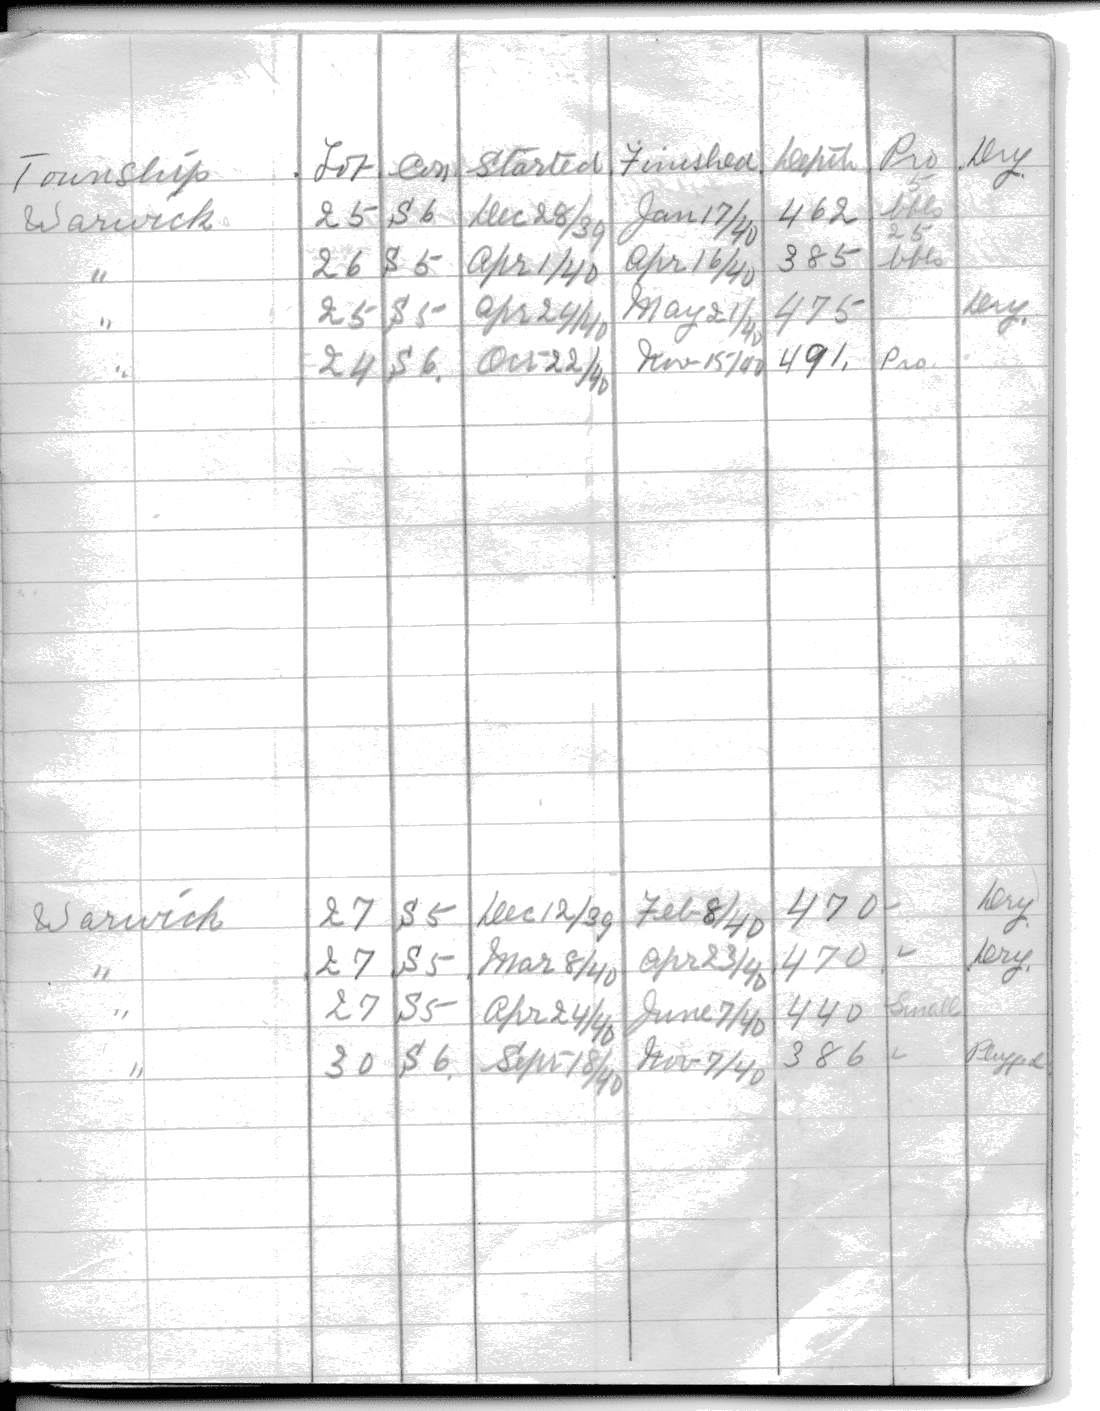 Township Lot Con Started Finished Depth Pro Dry.
Warwick 25 S 6 Dec 28/39 Jan 17/40 462 15 bbls
" 26 S 5 Apr 1/40 Apr 16/40 385 25 bbls
" 25 S 5 Apr 24/40 May 21/40 475 Dry.
" 24 S 6. Oct 22/40 Nov 15/40 491. Pro.
Warwick 27 S 5 Dec 12/39 Feb 8/40 470 - Dry
" 27 S 5 Mar 8/40 Apr 23/40 470 " Dry.
" 27 S 5 Apr 24/40 June 7/40 440 Small
" 30 S 6. Sept 18/40 Nov 7/40 386 " Plugged